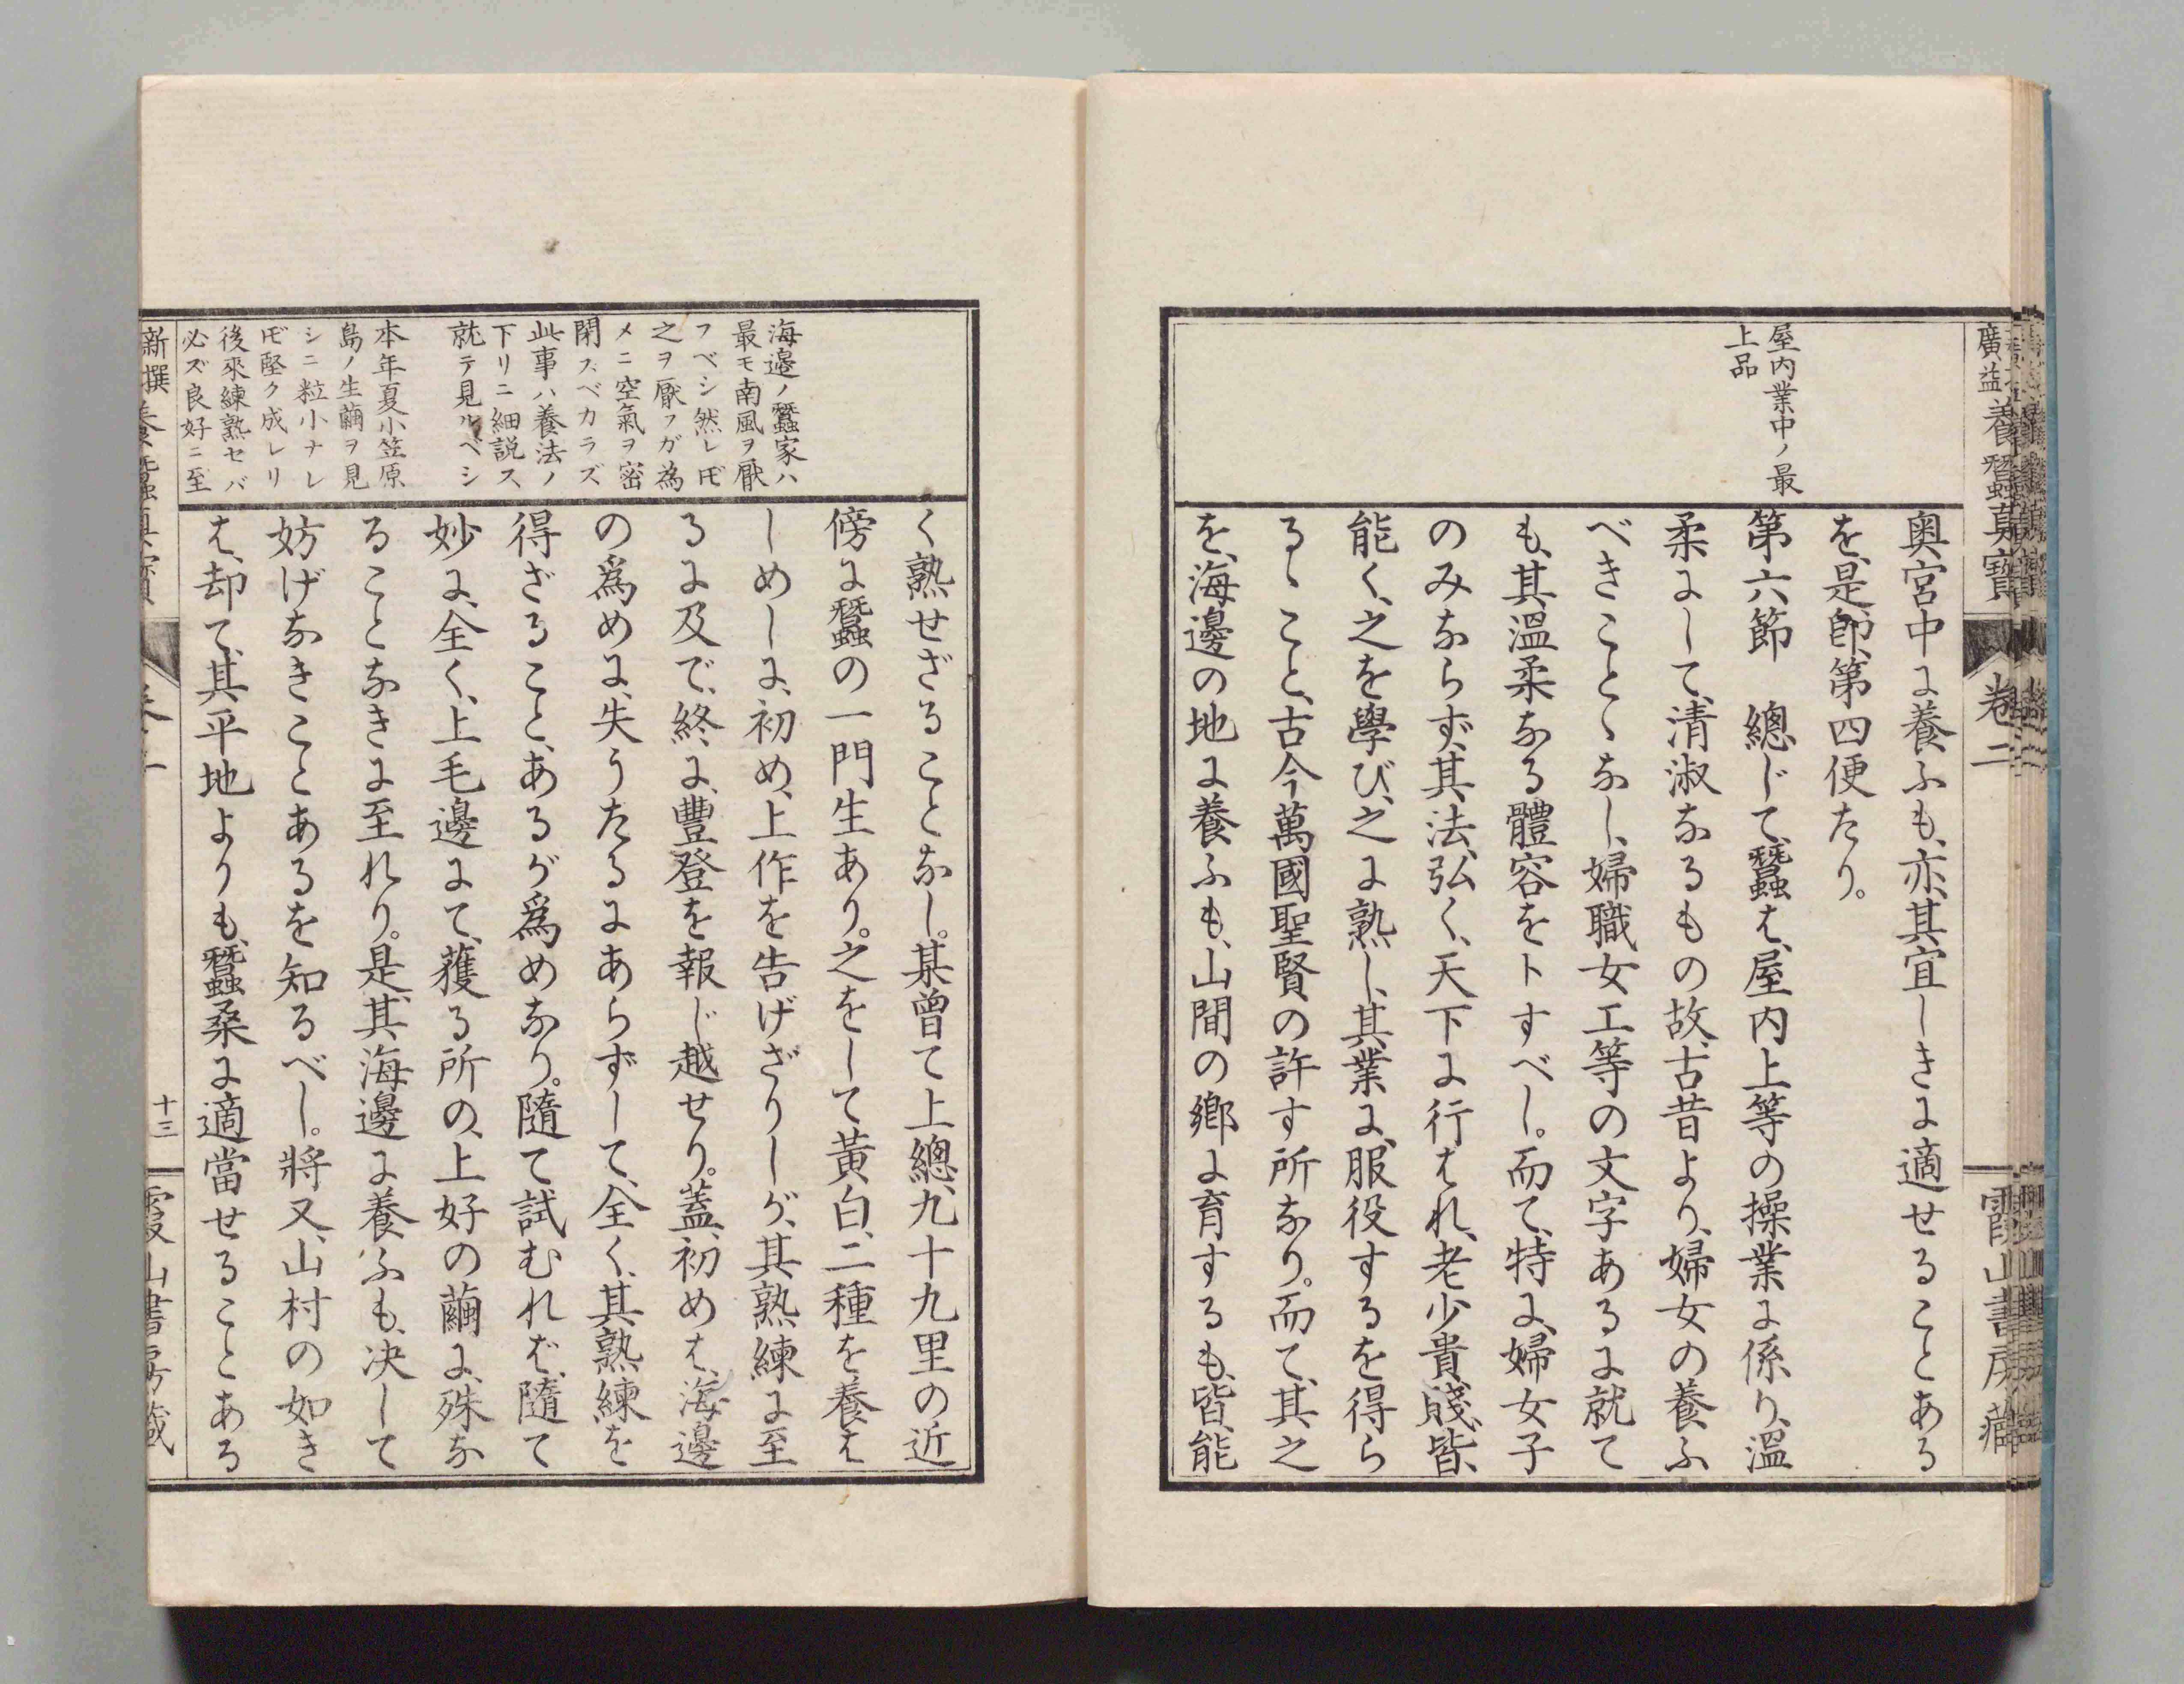 廣益養蠶真寶 卷二 霞山書房藏
屋内業中ノ最
上品
奥宮中に養ふも、亦、其宜しきに適せることある
を、是、即、第四便たり。
第六節　總じて、蠶は、屋内上等の操業に係り、溫
柔にして、清淑なるもの故、古昔より、婦女の養ふ
べきことゝなし、婦職女工等の文字あるに就て
も、其溫柔なる體容をトすべし。而て、特に、婦女子
のみならず、其法、弘く、天下に行はれ、老少貴賤、皆、
能く、之を學び、之に熟し、其業に、服役するを得ら
るゝこと、古今萬國聖賢の許す所なり。而て、其之
を、海邊の地に養ふも、山間の鄉に育するも、皆、能
海邊ノ蠶家ハ
最モ南風ヲ厭
フベシ然レ𪜈
之ヲ厭フガ為
メニ空氣ヲ密
閉スベカラズ
此事ハ養法ノ
下リニ細説ス
就テ見ルベシ
本年夏小笠原
島ノ生繭ヲ見
シニ粒小ナレ
𪜈堅ク成レリ
後來練熟セバ
必ズ良好ニ至
く熟せざることなし。某曾て上總、九十九里の近
傍に蠶の一門生あり。之をして黃白、二種を養は
しめしに、初め、上作を告げざりしが、其熟練に至
るに及で、終に、豐登を報じ越せり。蓋、初めは、海邊
の爲めに、失うたるにあらずして、全く、其熟練を
得ざること、あるが爲めなり。隨て試むれば、隨て
妙に、全く、上毛邊にて、獲る所の、上好の繭に、殊な
ることなきに至れり。是、其海邊に養ふも、决して
妨げなきことあるを知るべし。將又、山村の如き
は、却て、其平地よりも、蠶桑に適當せることある
新撰養蠶真寶 十三 霞山書房藏